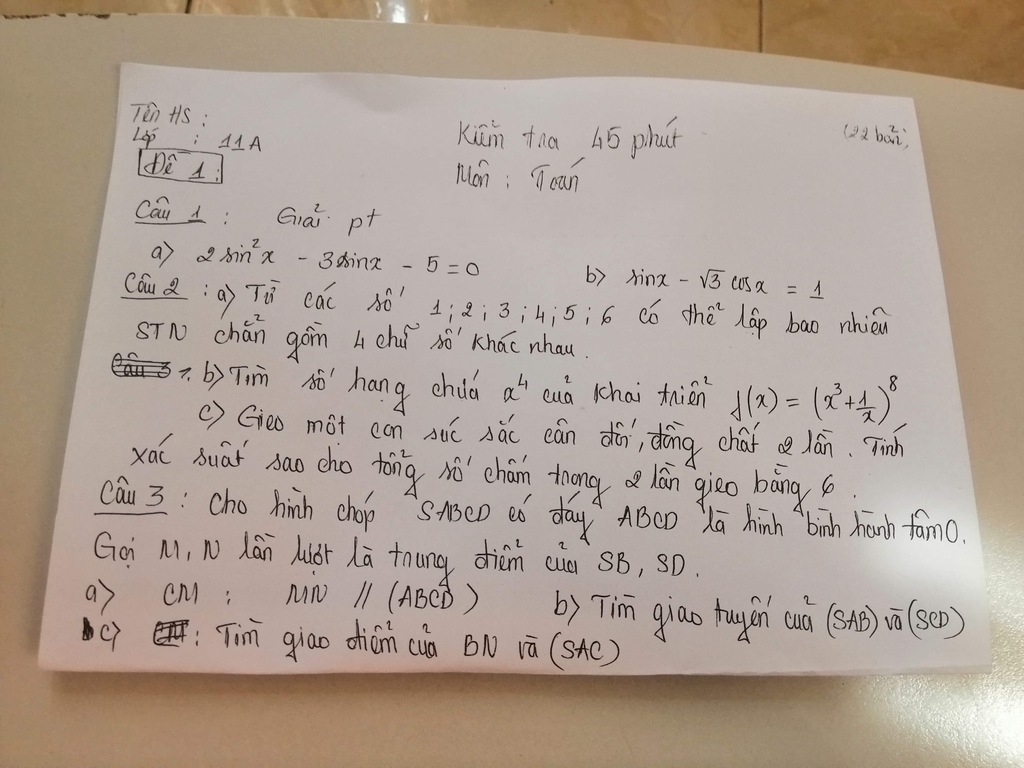 Tên HS :
Lớp : 11A
Kiểm tra 45 phút
(22 bản)
Đề 1:
Môn : Toán
Câu 1 : Giải pt
a) 2sin²x - 3sinx - 5 = 0
b) sinx - √3 cosx = 1
Câu 2 : a) Từ các số 1 ; 2 ; 3 ; 4 ; 5 ; 6 có thể lập bao nhiêu
STN chẵn gồm 4 chữ số khác nhau.
b) Tìm số hạng chứa x⁴ của khai triển f(x) = (x³ + 1/x)⁸
c) Gieo một con súc sắc cân đối, đồng chất 2 lần. Tính
xác suất sao cho tổng số chấm trong 2 lần gieo bằng 6.
Câu 3 : Cho hình chóp SABCD có đáy ABCD là hình bình hành tâm O.
Gọi M, N lần lượt là trung điểm của SB, SD.
a) CM : MN // (ABCD)
b) Tìm giao tuyến của (SAB) và (SCD)
c) : Tìm giao điểm của BN và (SAC)